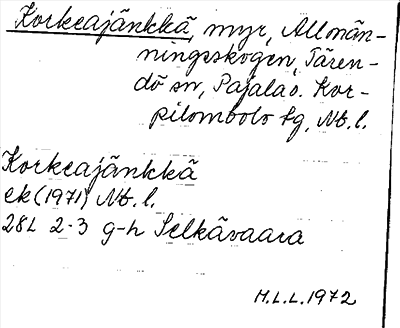 Korkeajänkkä, myr, Allmän-
ningsskogen, Tären-
dö sn, Pajala o. Kor-
pilombolo tg, Nb. l.
Korkeajänkkä
ek (1971) Nb. l.
28L 2-3 g-h Selkävaara
H.L.L. 1972